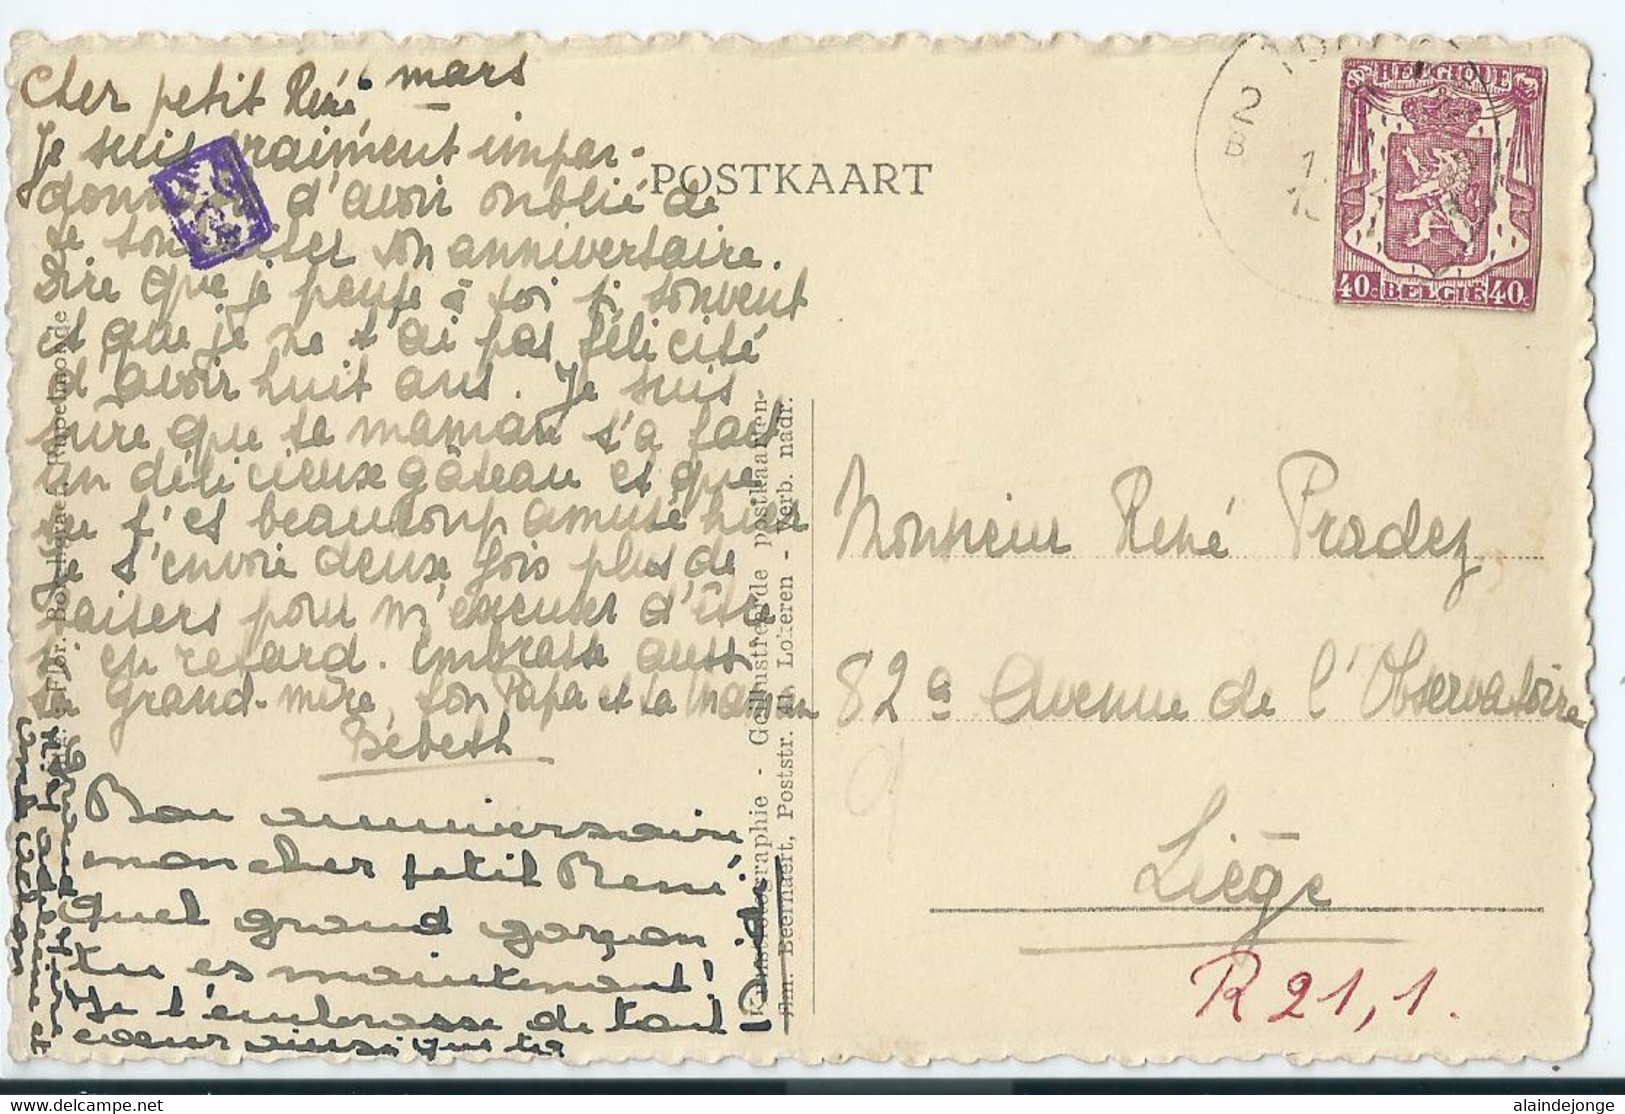 6 mars
Cher petit René,
Je suis vraiment impar-
donn d'avoir oublié de
te sou ter ton anniversaire.
Dire que je pense à toi si souvent
et que je ne t'ai pas félicité
d'avoir huit ans. Je suis
sure que ta maman t'a fait
un délicieux gâteau et que
tu t'es beaucoup amusé hier
Je t'envoie deux fois plus de
baisers pour m'excuser d'être
si en retard. Embrasse aussi
ta Grand-mère, ton Papa et ta Maman
Bebeth
Bon anniversaire
mon cher petit René
Quel grand garçon
tu es maintenant!
Je t'embrasse de tout
cœur ainsi que ta
POSTKAART
BELGIQUE
40c BELGIE 40c
2
B
Monsieur René Pradez
82a Avenue de l'Observatoire
Liège
R 21,1.
Rupelmonde
Kunstfotographie - Geïllustreerde postkaarten-
Jan. Beernaert, Poststr. 41, Lokeren - Verb. nadr.
alaindejonge